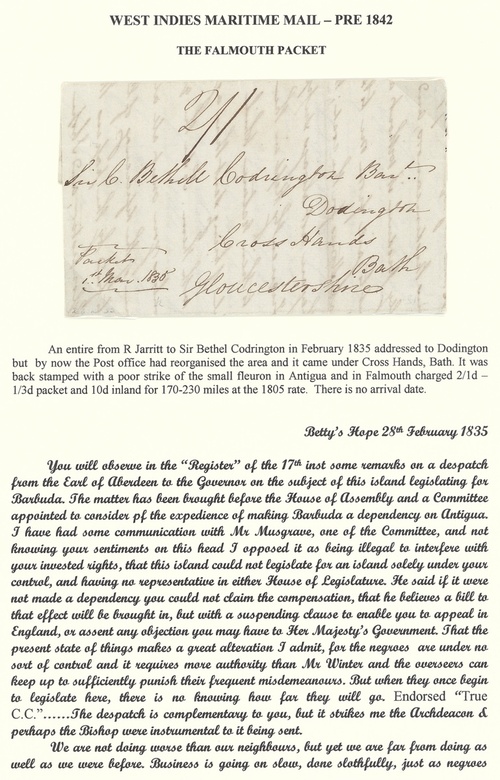 WEST INDIES MARITIME MAIL – PRE 1842
THE FALMOUTH PACKET
2/1
Sir C. Bethell Codrington Bart.
Dodington
Cross Hands
Bath
Gloucestershire
Packet
1st Mar. 1835
An entire from R Jarritt to Sir Bethel Codrington in February 1835 addressed to Dodington
but by now the Post office had reorganised the area and it came under Cross Hands, Bath. It was
back stamped with a poor strike of the small fleuron in Antigua and in Falmouth charged 2/1d –
1/3d packet and 10d inland for 170-230 miles at the 1805 rate. There is no arrival date.
Betty's Hope 28th February 1835
You will observe in the “Register” of the 17th inst some remarks on a despatch
from the Earl of Aberdeen to the Governor on the subject of this island legislating for
Barbuda. The matter has been brought before the House of Assembly and a Committee
appointed to consider pf the expedience of making Barbuda a dependency on Antigua.
I have had some communication with Mr Musgrave, one of the Committee, and not
knowing your sentiments on this head I opposed it as being illegal to interfere with
your invested rights, that this island could not legislate for an island solely under your
control, and having no representative in either House of Legislature. He said if it were
not made a dependency you could not claim the compensation, that he believes a bill to
that effect will be brought in, but with a suspending clause to enable you to appeal in
England, or assent any objection you may have to Her Majesty's Government. That the
present state of things makes a great alteration I admit, for the negroes are under no
sort of control and it requires more authority than Mr Winter and the overseers can
keep up to sufficiently punish their frequent misdemeanours. But when they once begin
to legislate here, there is no knowing how far they will go. Endorsed “True
C.C.”......The despatch is complementary to you, but it strikes me the Archdeacon &
perhaps the Bishop were instrumental to it being sent.
We are not doing worse than our neighbours, but yet we are far from doing as
well as we were before. Business is going on slow, done slothfully, just as negroes